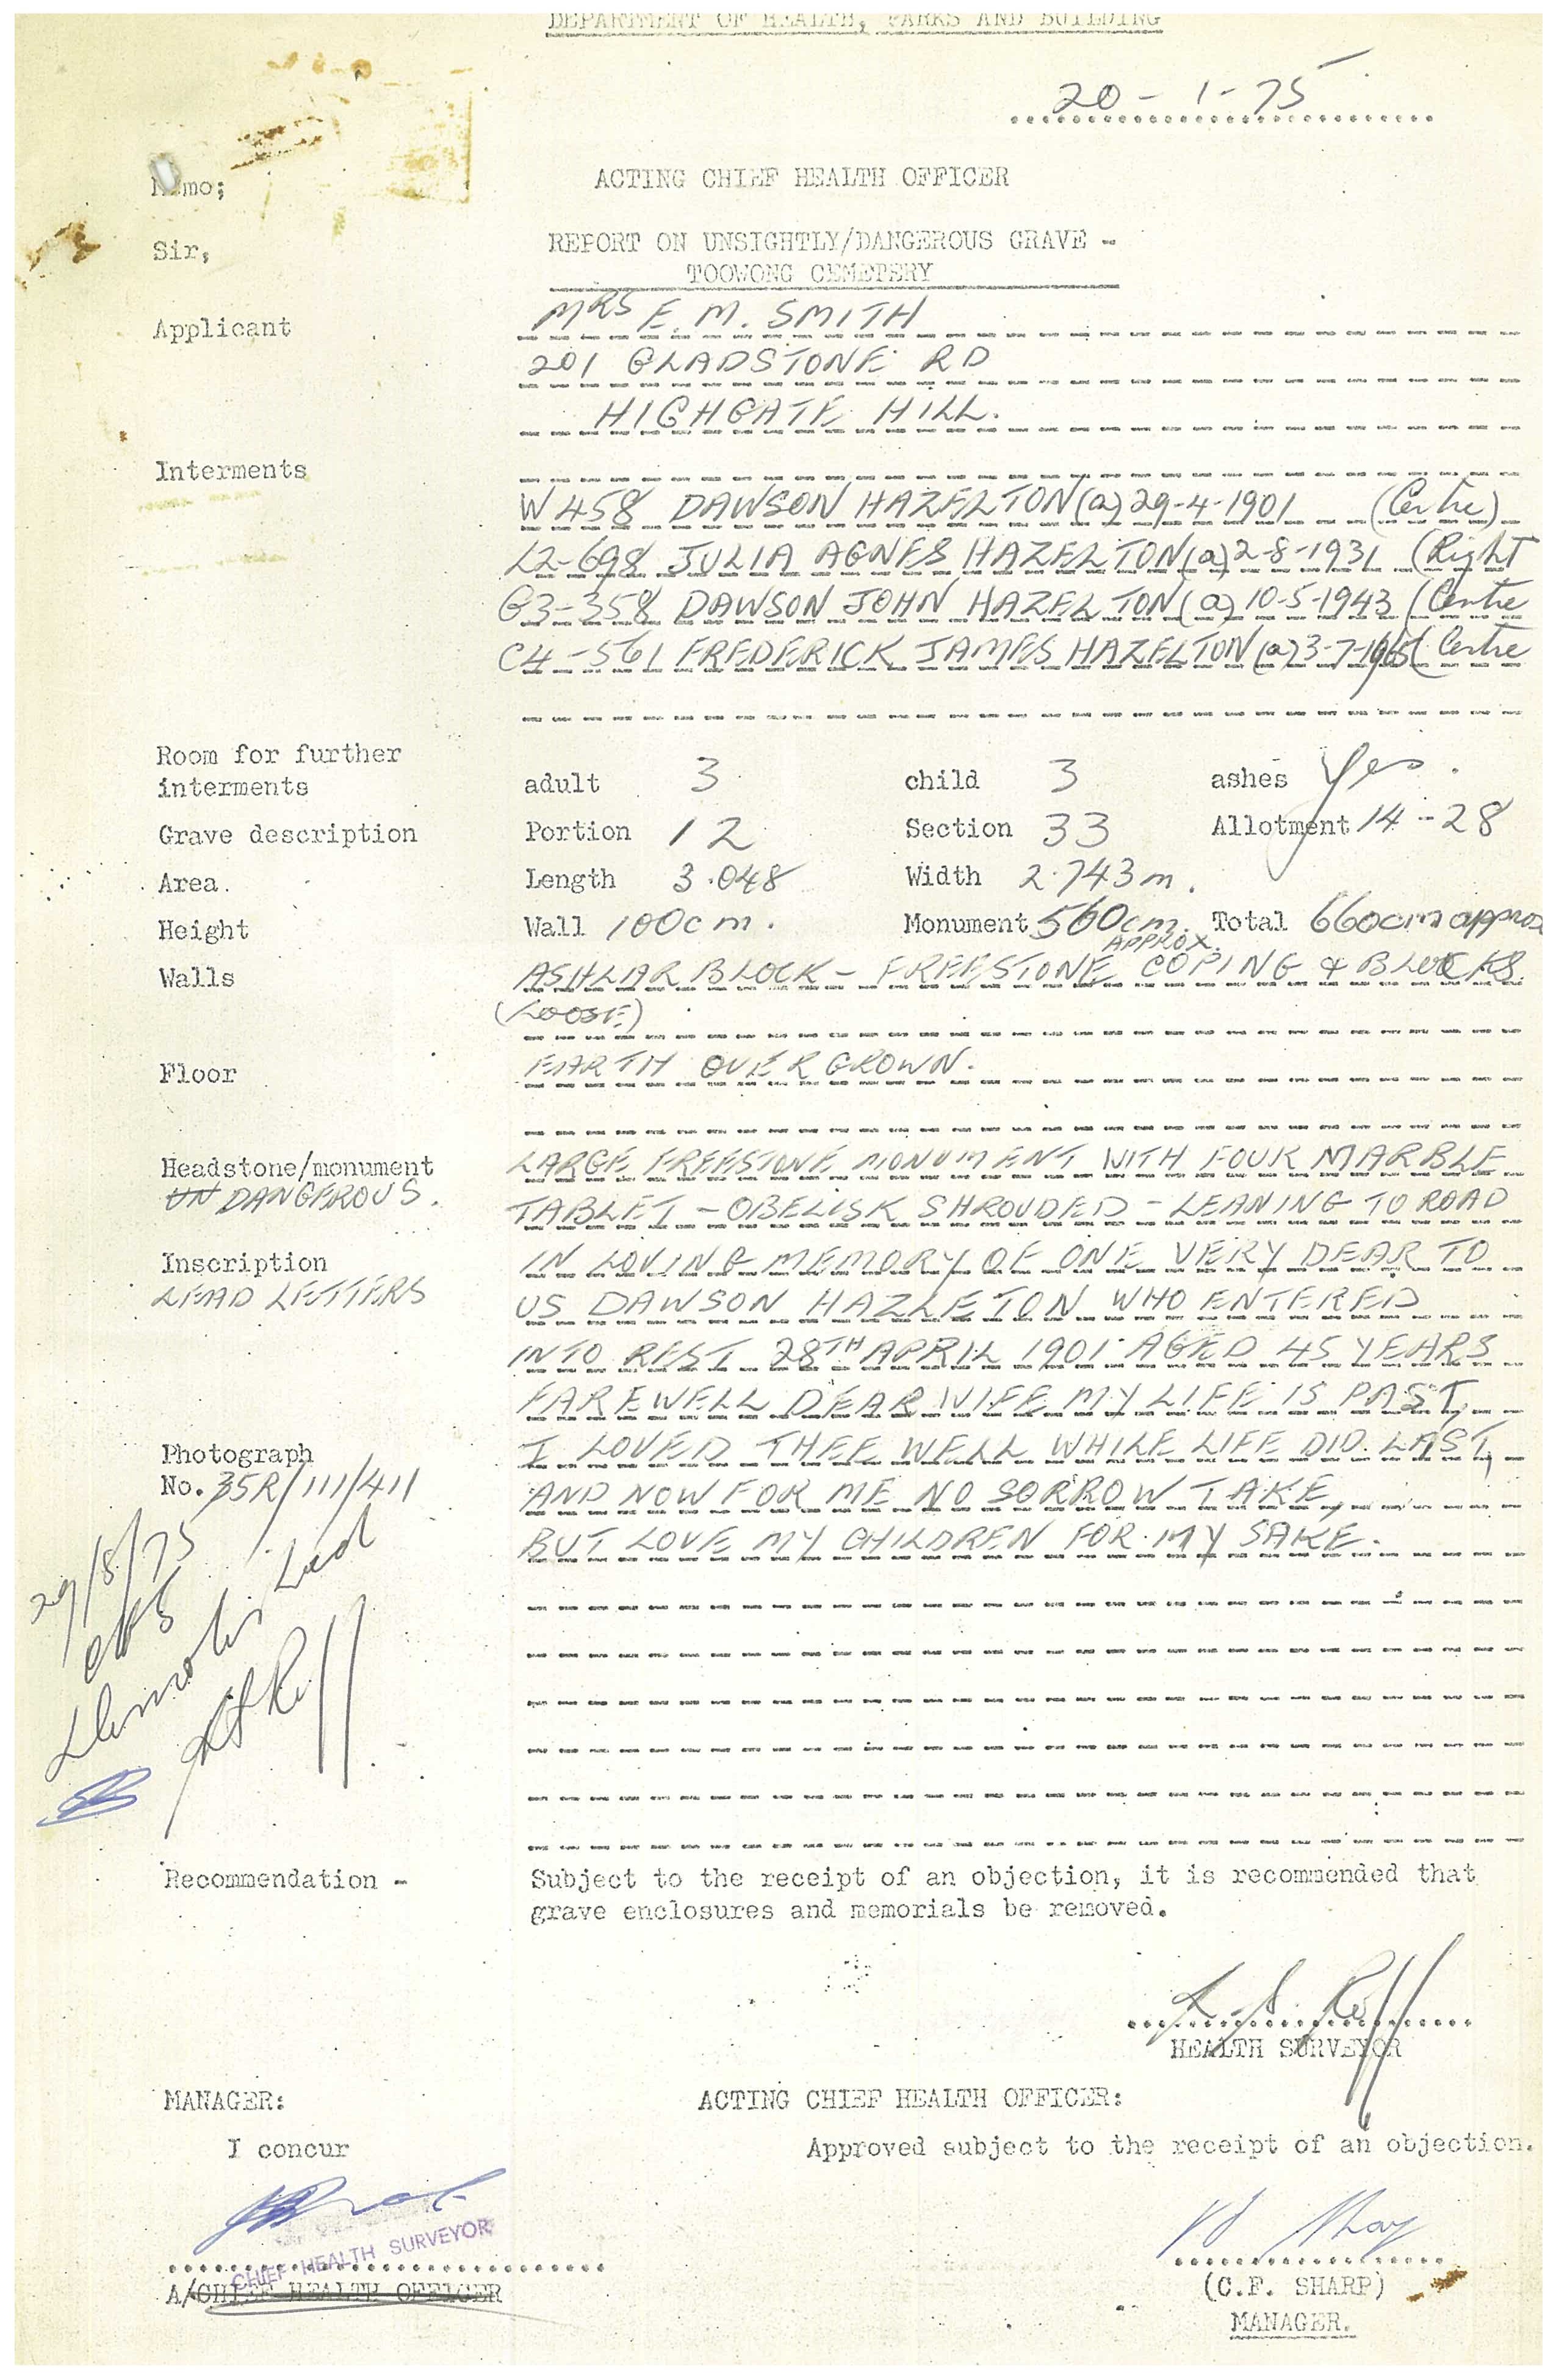 DEPARTMENT OF HEALTH, PARKS AND BUILDING
20-1-75
Memo; ACTING CHIEF HEALTH OFFICER
Sir, REPORT ON UNSIGHTLY/DANGEROUS GRAVE -
TOOWONG CEMETERY
Applicant MRS E. M. SMITH
201 GLADSTONE RD
HIGHGATE HILL.
Interments
W458 DAWSON HAZELTON (a) 29-4-1901 (Centre)
L2-698 JULIA AGNES HAZELTON (a) 2-8-1931 (Right
G3-358 DAWSON JOHN HAZELTON (a) 10-5-1943 (Centre
C4-561 FREDERICK JAMES HAZELTON (a) 3-7-1965 (Centre
Room for further
interments adult 3 child 3 ashes Yes.
Grave description Portion 12 Section 33 Allotment 14-28
Area. Length 3.048 Width 2.743m.
Height Wall 100cm. Monument 560cm. APPROX. Total 660cm approx
Walls ASHLAR BLOCK - FREESTONE COPING & BLOCKS.
(LOOSE)
Floor EARTH OVERGROWN.
Headstone/monument LARGE FREESTONE MONUMENT WITH FOUR MARBLE
UN DANGEROUS. TABLET - OBELISK SHROUDED - LEANING TO ROAD
Inscription IN LOVING MEMORY OF ONE VERY DEAR TO
LEAD LETTERS US DAWSON HAZLETON WHO ENTERED
INTO REST 28TH APRIL 1901 AGED 45 YEARS
FAREWELL DEAR WIFE MY LIFE IS PAST,
Photograph I LOVED THEE WELL WHILE LIFE DID LAST,
No. 35R/111/411 AND NOW FOR ME NO SORROW TAKE,
BUT LOVE MY CHILDREN FOR MY SAKE.
29/8/75
Recommendation - Subject to the receipt of an objection, it is recommended that
grave enclosures and memorials be removed.
HEALTH SURVEYOR
MANAGER: ACTING CHIEF HEALTH OFFICER:
I concur Approved subject to the receipt of an objection.
CHIEF HEALTH SURVEYOR
A/CHIEF HEALTH OFFICER
(C.F. SHARP)
MANAGER.